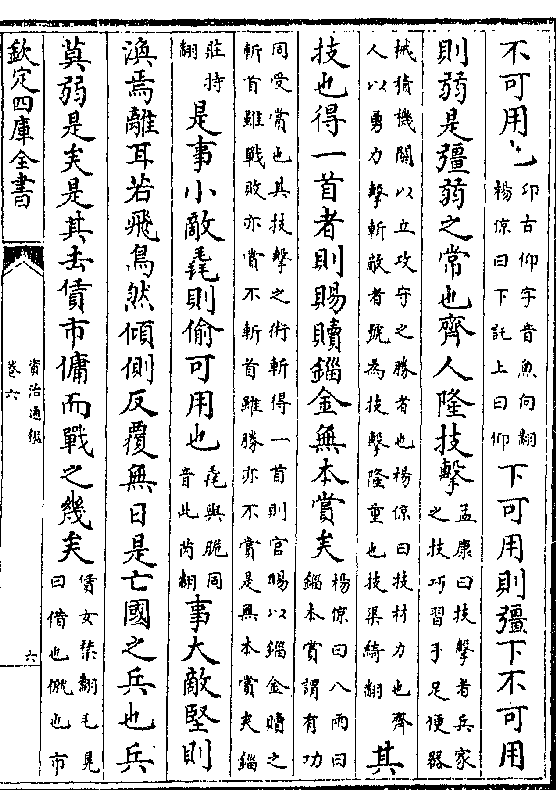 不可用也卬古仰字音魚向翻
楊倞曰下託上曰仰下可用則彊下不可用
則弱是彊弱之常也齊人隆技擊孟康曰技擊者兵家
之技巧習手足便器
械積機關以立攻守之勝者也楊倞曰技材力也齊
人以勇力擊斬敵者號為技擊隆重也技渠綺翻其
技也得一首者則賜贖錙金無本賞矣楊倞曰八兩曰
錙本賞謂有功
同受賞也其技擊之術斬得一首則官賜以錙金贖之
斬首雖戰敗亦賞不斬首雖勝亦不賞是無本賞矣錙
莊持
翻是事小敵毳則偷可用也毳與脆同
音此芮翻事大敵堅則
渙焉離耳若飛鳥然傾側反覆無日是亡國之兵也兵
莫弱是矣是其去賃市傭而戰之幾矣賃女禁翻毛晃
曰借也僦也市
欽定四庫全書
資治通鑑
卷六
六